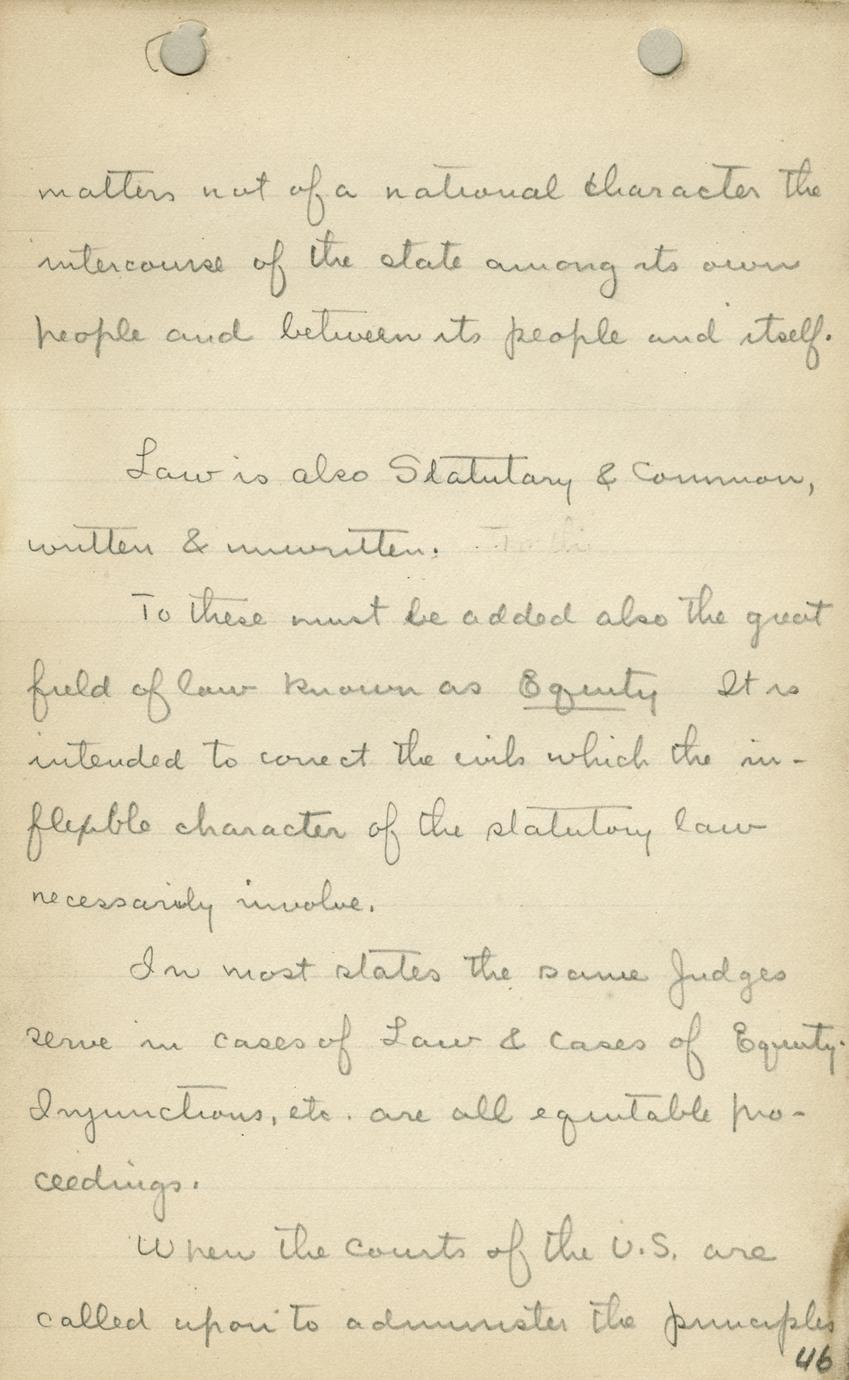 matters not of a national character the
intercourse of the state among its own
people and between its people and itself.
Law is also Statutary & Common,
written & unwritten.
To these must be added also the great
field of law known as Equity It is
intended to correct the evils which the in-
flexible character of the statutory law
necessarily involve.
In most states the same Judges
serve in cases of Law & cases of Equity.
Injunctions, etc. are all equitable pro-
ceedings.
When the courts of the U.S. are
called upon to administer the principles
46